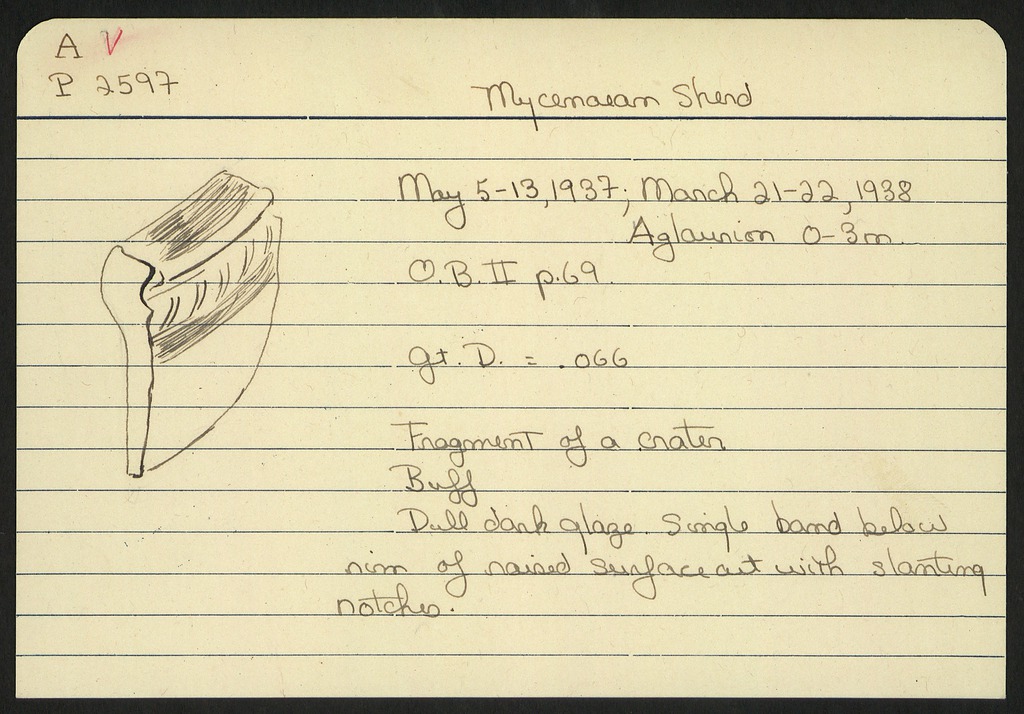 A V
P 2597
Mycenaean Sherd
May 5-13, 1937; March 21-22, 1938
Aglaurion 0-3m.
O.B. II p.69.
gt. D. = .066
Fragment of a crater
Buff
Dull dark glaze. Single band below
rim of raised surface cut with slanting
notches.